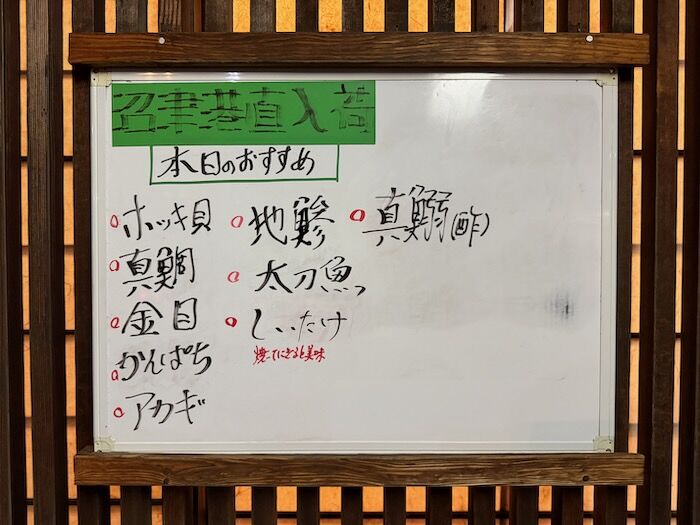 沼津港直入荷
本日のおすすめ
ホッキ貝
真鯛
金目
かんぱち
アカギ
地鯵
太刀魚
しいたけ
焼いてにぎると美味
真鰯(酢)